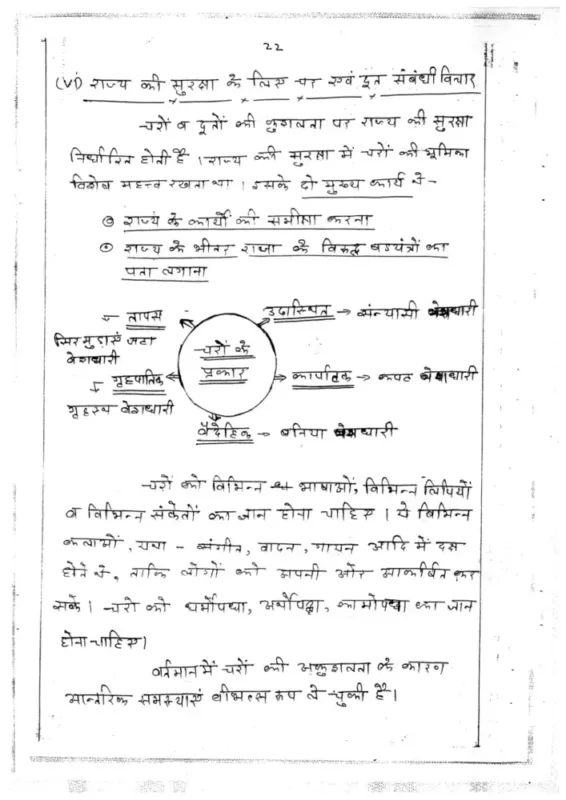 22
(VI) राज्य की सुरक्षा के लिए चर एवं दूत संबंधी विचार
चरों व दूतों की कुशलता पर राज्य की सुरक्षा
निर्धारित होती है। राज्य की सुरक्षा में चरों की भूमिका
विशेष महत्व रखता था। इसके दो मुख्य कार्य थे-
राज्य के कार्यों की समीक्षा करना
राज्य के भीतर राजा के विरुद्ध षडयंत्रों का
पता लगाना
तापस
उदास्थित → संन्यासी वेशधारी
सिर मुड़ाएं जटा
वेशधारी
चरों के
प्रकार
गृहपातिक
कार्पातिक → कपट वेशधारी
गृहस्थ वेशधारी
वैदेहिक → बनिया वेशधारी
चरों को विभिन्न भाषाओं, विभिन्न लिपियों
व विभिन्न संकेतों का ज्ञान होना चाहिए। ये विभिन्न
कलाओं, यथा - संगीत, वादन, गायन आदि में दक्ष
होते थे, ताकि लोगों को अपनी ओर आकर्षित कर
सके। चरों को धर्मोपधा, अर्थोपधा, कामोपधा का ज्ञान
होना चाहिए।
वर्तमान में चरों की अकुशलता के कारण
आन्तरिक समस्याएं वीभत्स रूप ले चुकी है।